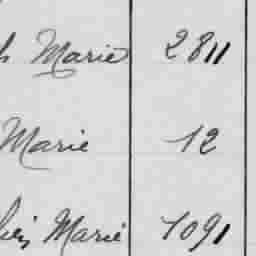 Marie 2811
Marie 12
Marie 1091